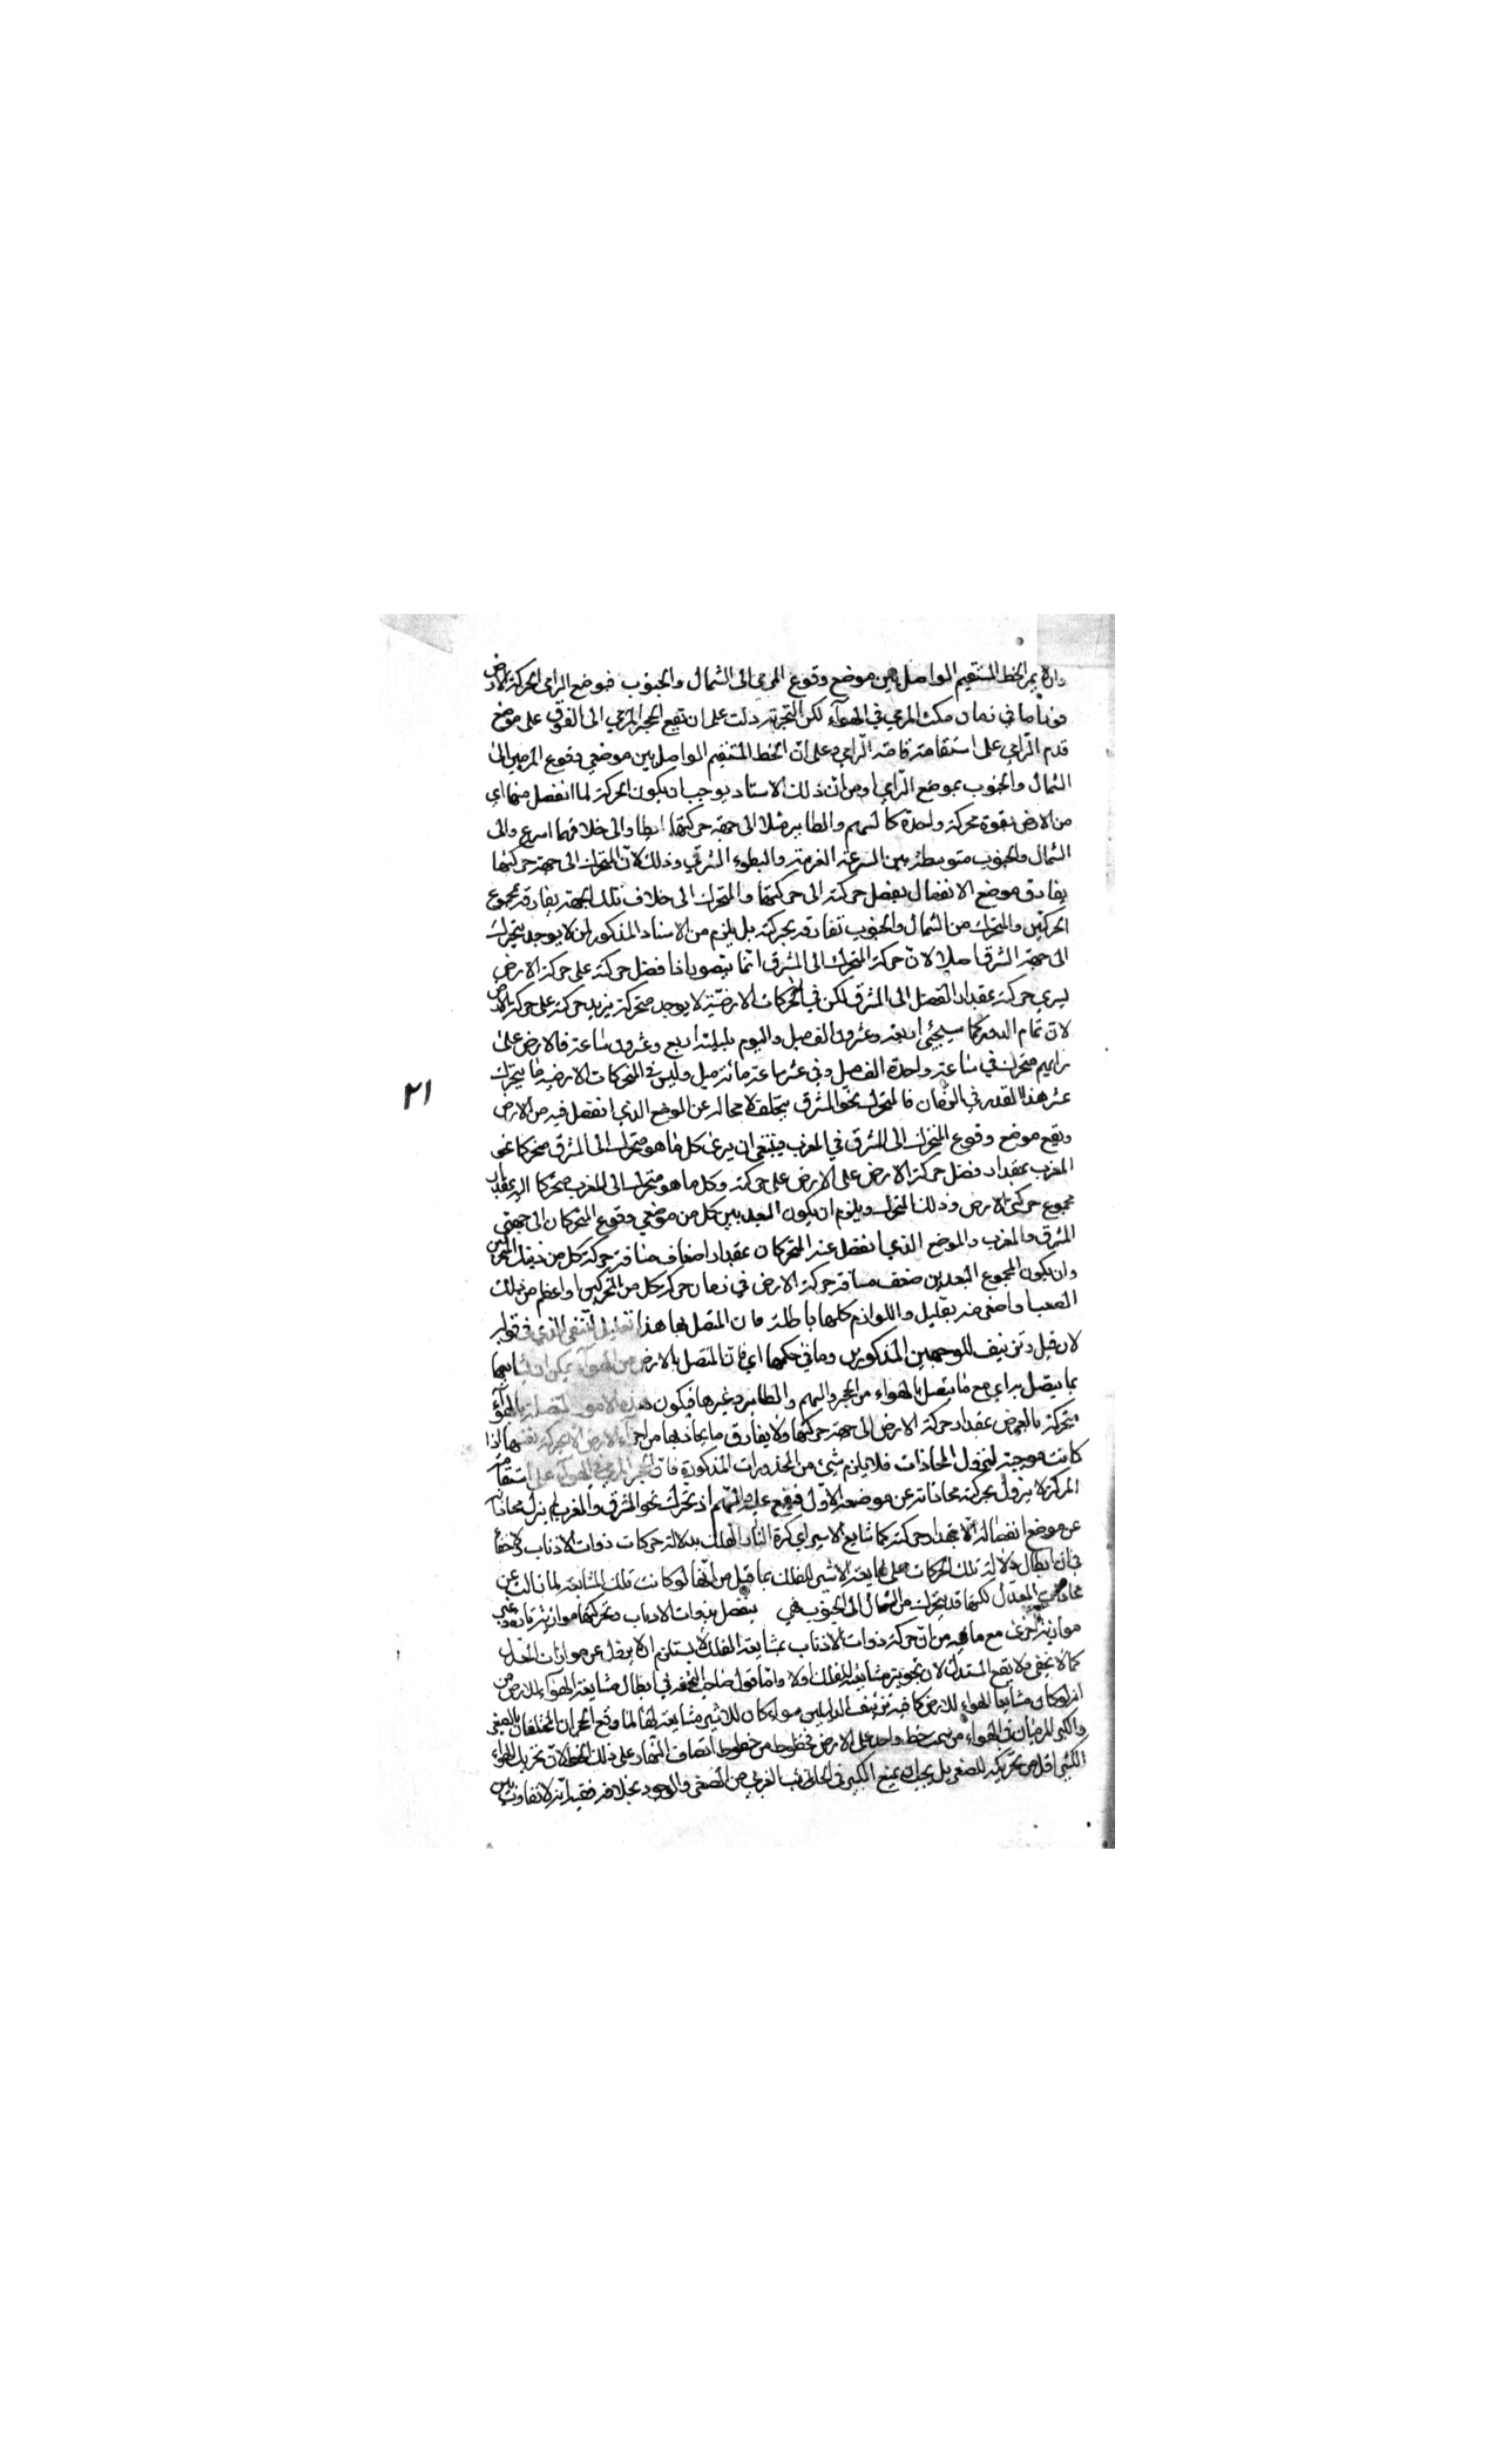 وان لا يمر الخط المستقيم الواصل بين موضع وقوع المرمى الى الشمال والجنوب فموضع الرامي لحركة الارض
دورانا ما في زمان مكث المرمي في الهوآء لكن التجربة دلت على ان تقع الحجر المرمي الى الفوق على موضع
قدم الرامي على استقامة قامة الرامي وعلى ان الخط المستقيم الواصل بين موضعي وقوع المرميين الى
الشمال والجنوب بموضع الرامي او من ان ذلك الاسناد يوجب ان يكون الحركة لما انفصل منها اي
من الارض بقوة محركة واحدة كالسهم والطاير مثلا الى جهة حركتها ابطا والى خلافها اسرع والى
الشمال والجنوب متوسطة بين السرعة الغربية والبطوء الشرقي وذلك لان المتحرك الى جهة حركتها
يفارق موضع الانفصال بفضل حركته الى حركتها والمتحرك الى خلاف تلك الجهة يفارقه بمجموع
الحركتين والمتحرك من الشمال والجنوب تفارقه بحركته بل يلزم من الاسناد المذكور ان لا يوجد يتحرك
الى جهة الشرق اصلا لان حركة المتحرك الى المشرق انما يتصور اذا فضل حركته على حركة الارض
ليرى حركته بمقدار الفضل الى المشرق لكن في الحركات الارضية لا يوجد متحركة يزيد حركته على حركة الارض
لان تمام الدور كما سيجئ اربعة وعشرون الف ميل واليوم بليلته اربع وعشرون ساعة فالارض على
زايهم متحرك في ساعة واحدة الف ميل وفي عشر ساعة مائة ميل وليس في المتحركات الارضية ما يتحرك
عشر هذا القدر في الزمان فالمتحرك نحو المشرق يتخلف لا محالة عن الموضع الذي انفصل فيه من الارض
ويقع موضع وقوع المتحرك الى الشرق في المغرب فينبغي ان يرى كل ما هو متحرك الى المشرق متحركا نحو
المغرب بمقدار فضل حركة الارض على الارض على حركته وكل ما هو متحرك الى المغرب متحركا اليه بمقدار
مجموع حركتي الارض وذلك المتحرك ويلزم ان يكون البعد بين كل من موضعي وقوع المتحركان الى جهتي
المشرق والمغرب والموضع الذي انفصل عنه المتحركان بمقدار اضعاف مسافة حركة كل من ذينك المتحركين
وان يكون المجموع البعدين ضعف مسافة حركة الارض في زمان حركة كل من المتحركين او اعظم من ذلك
الضعف او اصغر منه بقليل واللوازم كلها باطلة فان المتصل بها هذا تعليل للنفي الذي في قوله
لان قيل وتزييف للوجهين المذكورين وما في حكمها اي فان المتصل بالارض من الهوآء يمكن ان يشايعها
بما يتصل به اي مع ما يتصل بالهواء من الحجر والسهم والطاير وغيرها فيكون هذه الامور المتصلة بالهوآء
متحركة بالعرض بمقدار حركة الارض الى جهة حركتها ولا يفارق ما يحاذيها من اجزاء الارض الا بحركة نفسها اذا
كانت موجبة لزوال المحاذات فلا يلزم شئ من المحذورات المذكورة فان الحجر المرمي في الهوآء على استقامة
المركز لا يزول بحركته محاذاته عن موضعه الاول فيقع عليه والسهم اذ تحرك نحو المشرق والمغرب لم يزل محاذاته
عن موضع انفصاله الا بمقدار حركته كما شايع الاثير اي كرة النار الفلك بدلالة حركات ذوات الاذناب ولا خفأ
في ان ابطال دلالة تلك الحركات على مشايعة الاثير للفلك بما قيل من انها لو كانت تلك المشايعة لما زالت عن
محاذات المعدل لكنها قد يتحرك من الشمال الى الجنوب هي ينفصل بذوات الاذناب وتحركها موازية تارة وغير
موازية اخرى مع ما فيه من ان حركة ذوات الاذناب بمشايعة الفلك لا يستلزم ان لا يزول عن موازات المعدل
كما لا يخفى ولا يقع المستدل لان تجويز مشايعة الفلك اولا واما قول صاحب التحفة في ابطال مشايعة الهوآء للارض من
انه لو كان مشايعا الهواء للارض كافية تزييف الدليلين سواء كان للاثير مشايعة لها لما وقع الحجران المختلفان بالصغر
والكبر المرميان في الهواء من سمت خط واحد على الارض مخطوط من خطوط انصاف النهار على ذلك الخط لان تحريك الهواء
الكبير اقل من تحريكه للصغير بل يجب ان يقع الكبير في الجانب الغربي من الصغير والوجود بخلافه ففيه انه لا تفاوت بين
٢١